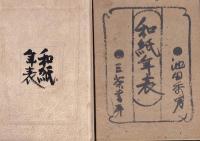 和紙
年表
池田秀男
(和紙年表)
三茶書房